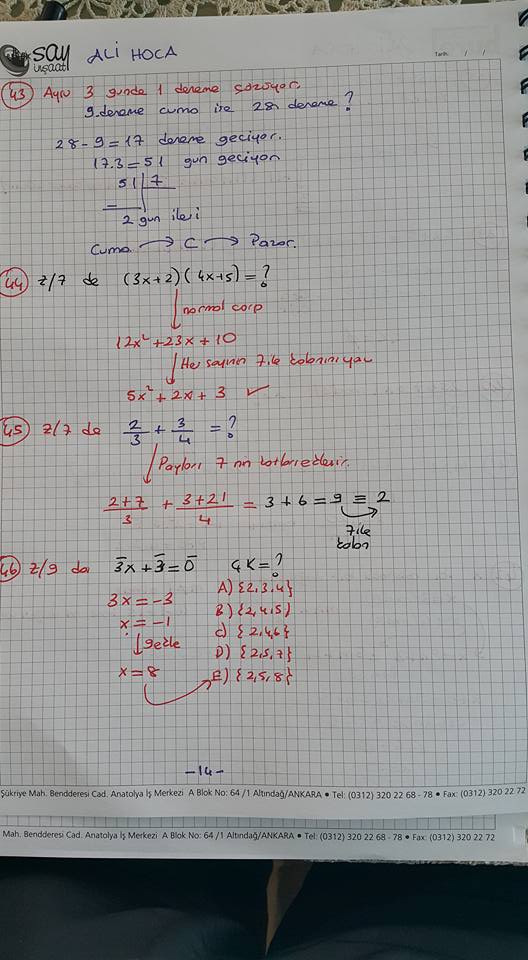 say
inşaat
ALİ HOCA
Tarih: / /
43) Aynı 3 günde 1 deneme çözüyor.
9. deneme cuma ise 28. deneme ?
28-9=17 deneme geciyor.
17.3=51 gun geciyor
51 | 7
2 gun ileri
Cuma → C → Pazar.
44) Z/7 de (3x+2)(4x+5)=?
normal carp
12x²+23x+10
Her sayının 7 ile kalanını yaz
5x²+2x+3 ✓
45) Z/7 de 2/3 + 3/4 = ?
Payları 7 nin katları eklenir.
2+7/3 + 3+21/4 = 3+6=9≡2
7 ile
kalan
46) Z/9 da 3̄x+3̄=0̄ ÇK=?
3x=-3
x=-1
9 ekle
x=8
A) {2,3,4}
B) {2,4,5}
C) {2,4,6}
D) {2,5,7}
E) {2,5,8}
-14-
Şükriye Mah. Bendderesi Cad. Anatolya İş Merkezi A Blok No: 64 /1 Altındağ/ANKARA • Tel: (0312) 320 22 68 - 78 • Fax: (0312) 320 22 72
Mah. Bendderesi Cad. Anatolya İş Merkezi A Blok No: 64 /1 Altındağ/ANKARA • Tel: (0312) 320 22 68 - 78 • Fax: (0312) 320 22 72